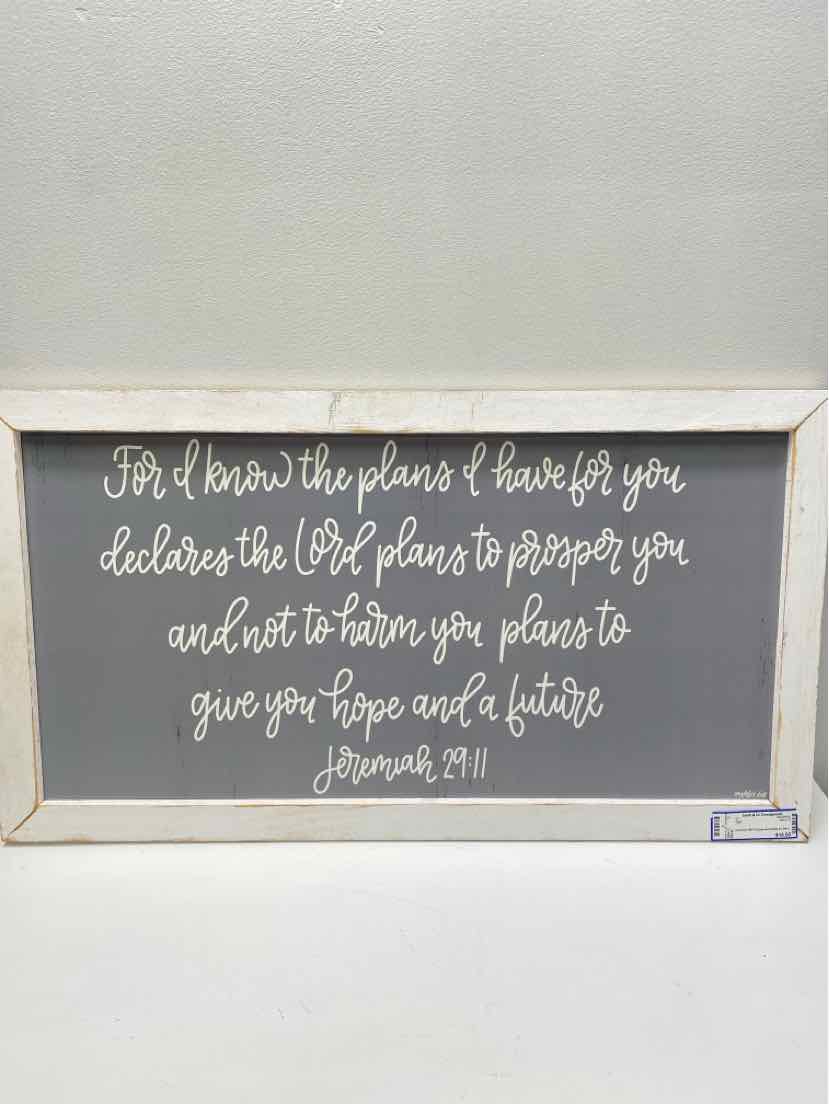 For I know the plans I have for you
declares the Lord plans to prosper you
and not to harm you plans to
give you hope and a future
Jeremiah 29:11